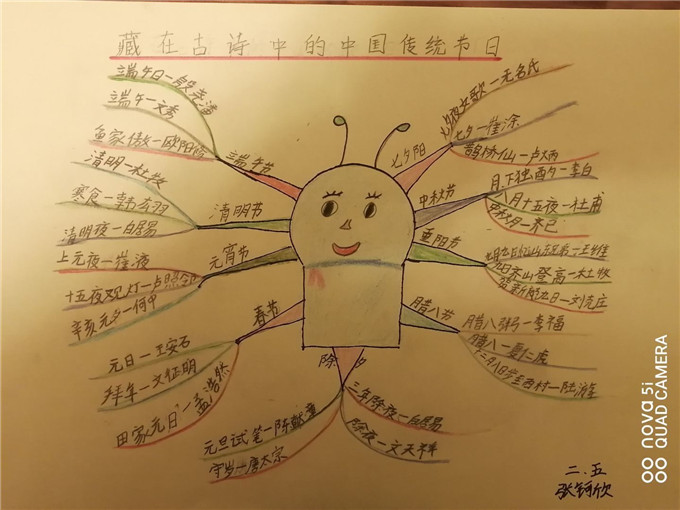 藏在古诗中的中国传统节日
端午节
端午日一殷尧藩
端午一文秀
渔家傲一欧阳修
清明节
清明一杜牧
寒食一韩翃
清明夜一白居易
元宵节
上元夜一崔液
十五夜观灯一卢照邻
辛亥元夕一何中
春节
元日一王安石
拜年一文征明
田家元日一孟浩然
除夕
元旦试笔一陈献章
守岁一唐太宗
三年除夜一白居易
除夜一文天祥
七夕阳
七夕夜女歌一无名氏
七夕一崔涂
鹊桥仙一卢炳
中秋节
月下独酌一李白
八月十五夜一杜甫
中秋月一齐己
重阳节
九月九日忆山东兄弟一王维
九日齐山登高一杜牧
贺新郎九日一刘克庄
腊八节
腊八粥一李福
腊八一夏仁虎
十二月八日步至西村一陆游
二.五
张钶欣
nova 5i
QUAD CAMERA